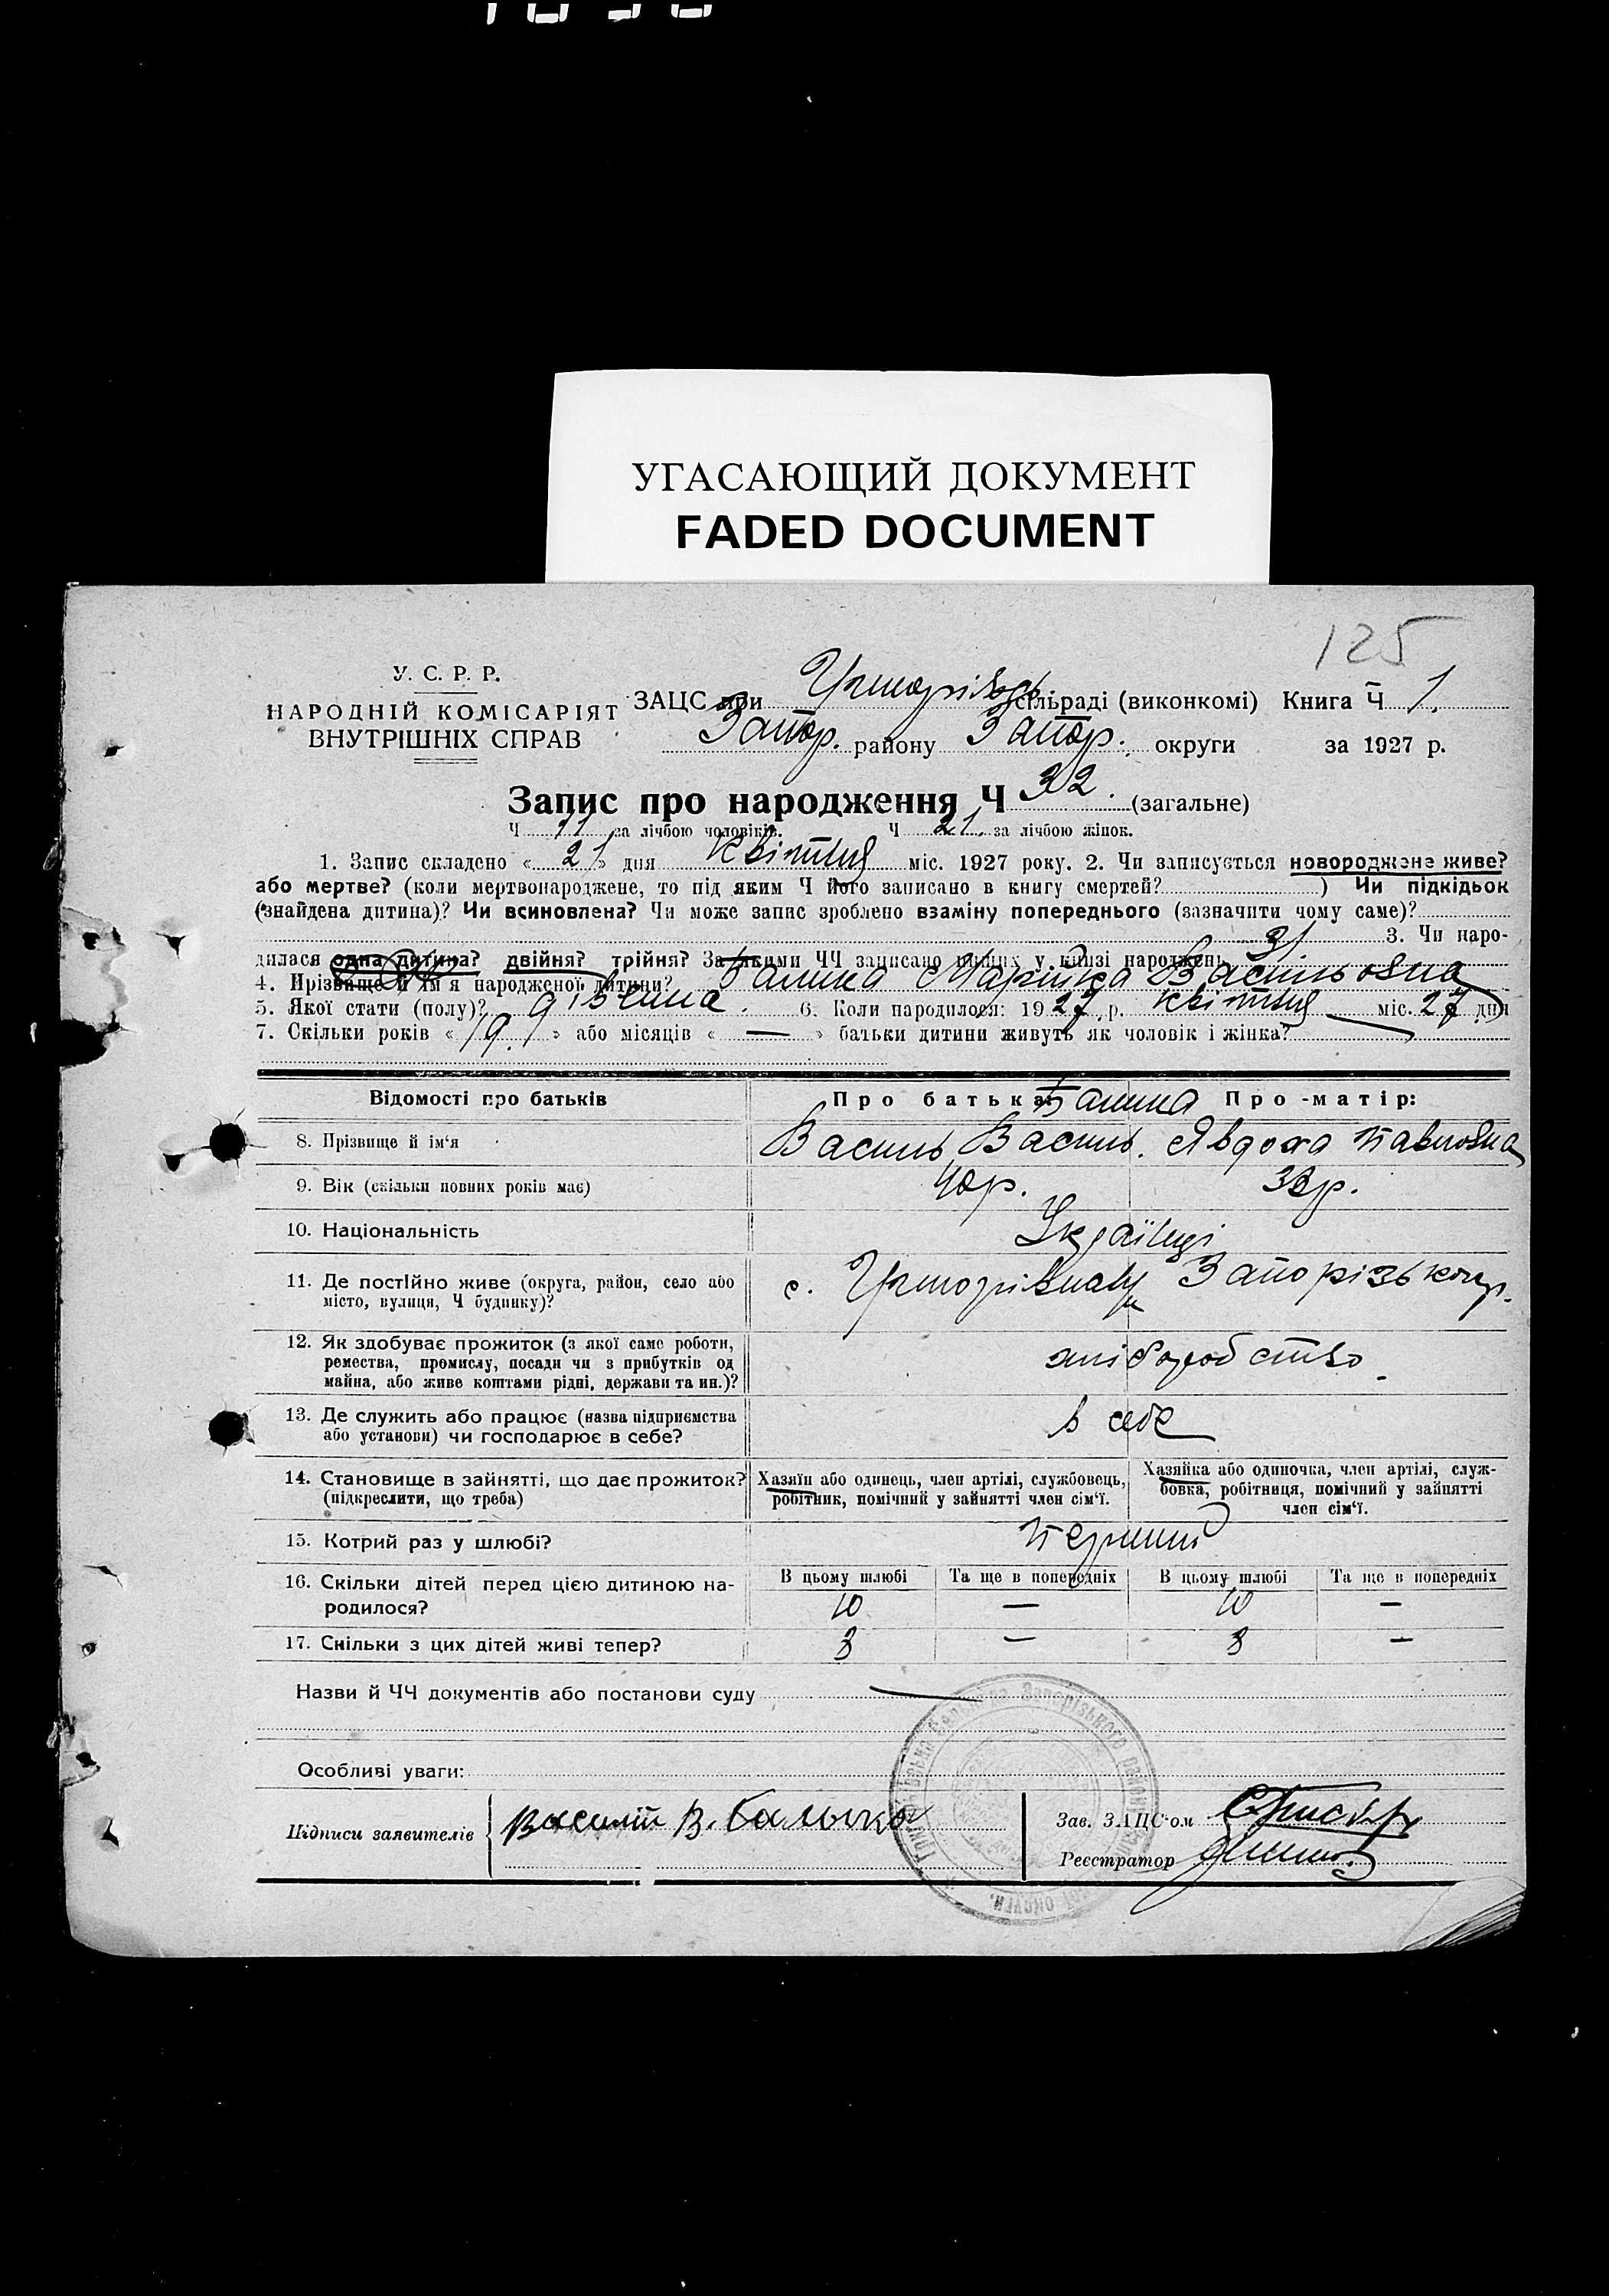 УГАСАЮЩИЙ ДОКУМЕНТ
FADED DOCUMENT
125
У. С. Р. Р.
НАРОДНІЙ КОМІСАРІЯТ
ВНУТРІШНІХ СПРАВ
ЗАЦС при сільраді (виконкомі) Книга Ч 1.
Запор. району Запор. округи за 1927 р.
Запис про народження Ч 32. (загальне)
Ч 11 за лічбою чоловіків. Ч 21. за лічбою жінок.
1. Запис складено «21» дня Квітня міс. 1927 року. 2. Чи записується новороджене живе?
або мертве? (коли мертвонароджене, то під яким Ч його записано в книгу смертей? ) Чи підкідьок
(знайдена дитина)? Чи всиновлена? Чи може запис зроблено взаміну попереднього (зазначити чому саме)?
31 3. Чи наро-
дилася одна дитина? двійня? трійня? За якими ЧЧ записано інших у книзі народжень
4. Прізвище й ім'я народженої дитини? Балика Марійка Васильовна
5. Якої стати (полу)? дівчина. 6. Коли народилося: 1927 р. Квітня міс. 27 дня
7. Скільки років «19» або місяців «—» батьки дитини живуть як чоловік і жінка?
Відомості про батьків
Про батька: Балика Про-матір:
8. Прізвище й ім'я
Василь Василь. Явдоха Павловна
9. Вік (скільки повних років має)
40р. 38р.
10. Національність
Українці
11. Де постійно живе (округа, район, село або
місто, вулиця, Ч будинку)?
с. Запорізьк
12. Як здобуває прожиток (з якої саме роботи,
ремества, промислу, посади чи з прибутків од
майна, або живе коштами рідні, держави та ин.)?
хліборобство
13. Де служить або працює (назва підприємства
або установи) чи господарює в себе?
в себе
14. Становище в зайнятті, що дає прожиток?
(підкреслити, що треба)
Хазяїн або одинець, член артілі, службовець,
робітник, помічний у зайнятті член сім'ї.
Хазяйка або одиночка, член артілі, служ-
бовка, робітниця, помічний у зайнятті
член сім'ї.
15. Котрий раз у шлюбі?
Перший
16. Скільки дітей перед цією дитиною на-
родилося?
В цьому шлюбі Та ще в попередніх В цьому шлюбі Та ще в попередніх
10 — 10 —
17. Скільки з цих дітей живі тепер?
8 — 8 —
Назви й ЧЧ документів або постанови суду
Особливі уваги:
Підписи заявителів
Василь В. Балыка
Зав. ЗАЦС'ом
Реєстратор